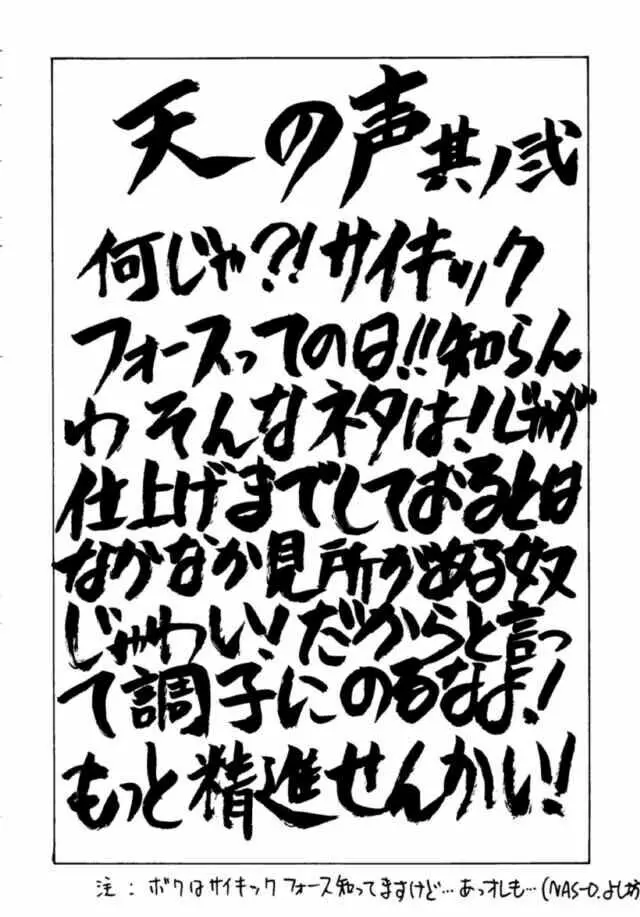 天の声 其ノ弐
何じゃ?!サイキック
フォースっての日!!知らん
わそんなネタは!じゃが
仕上げまでしておるとは
なかなか見所がある奴
じゃわい!だからと言っ
て調子にのるなよ!
もっと精進せんかい!
注:ボクはサイキックフォース知ってますけど…あっオレも…(NAS-O.よし